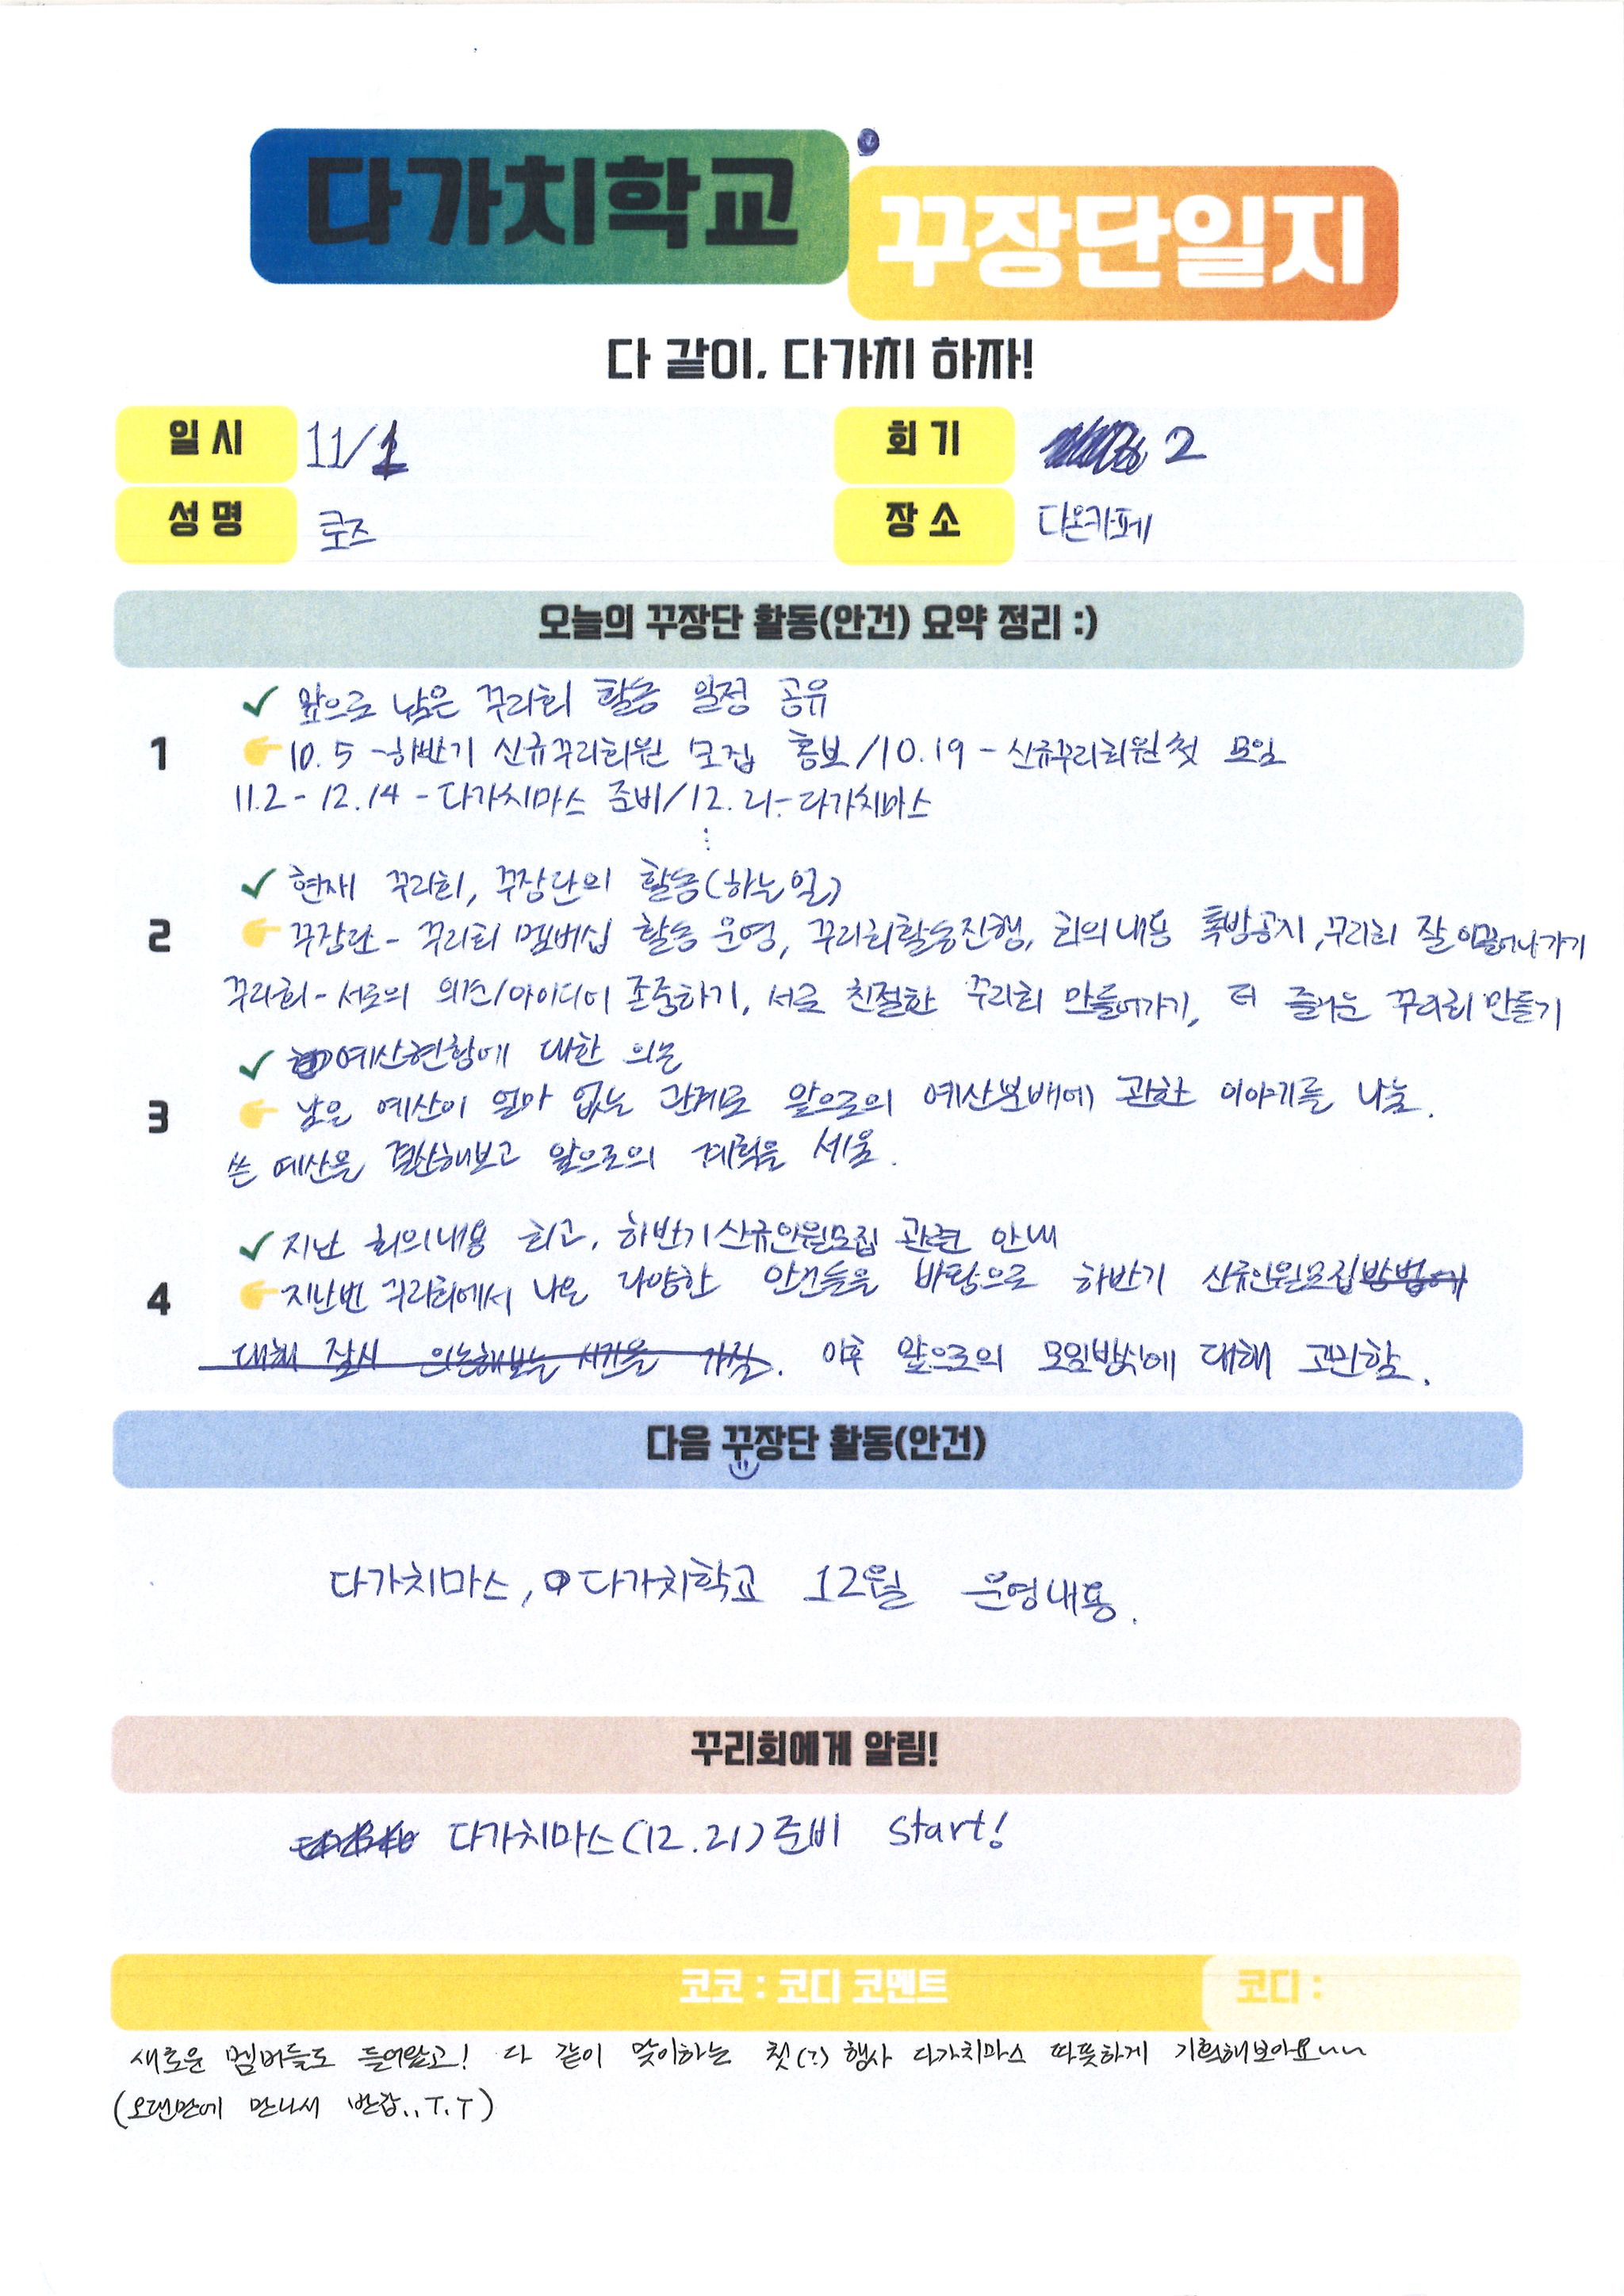 다가치학교
꾸장단일지
다 같이, 다가치 하자!
일시 11/1 회기 2
성명 로즈 장소 다온카페
오늘의 꾸장단 활동(안건) 요약 정리 :)
1
✓ 앞으로 남은 꾸리회 활동 일정 공유
👉 10.5 - 하반기 신규꾸리회원 모집 홍보/10.19 - 신규꾸리회원 첫 모임
11.2 - 12.14 - 다가치마스 준비/12.21 - 다가치마스
⋮
2
✓ 현재 꾸리회, 꾸장단의 활동(하는일)
👉 꾸장단 - 꾸리회 멤버십 활동 운영, 꾸리회활동진행, 회의내용 톡방공지, 꾸리회 잘 이끌어나가기
꾸리회 - 서로의 의견/아이디어 존중하기, 서로 친절한 꾸리회 만들어가기, 더 즐거운 꾸리회 만들기
3
✓ 예산현황에 대한 의논
👉 남은 예산이 얼마 없는 관계로 앞으로의 예산분배에 관한 이야기를 나눔.
쓴 예산을 결산해보고 앞으로의 계획을 세움.
4
✓ 지난 회의내용 회고, 하반기신규인원모집 관련 안내
👉 지난번 꾸리회에서 나온 다양한 안건들을 바탕으로 하반기 신규인원모집방법에
대해 잠시 의논해보는 시간을 가짐. 이후 앞으로의 모임방식에 대해 고민함.
다음 꾸장단 활동(안건)
다가치마스, 다가치학교 12월 운영내용.
꾸리회에게 알림!
다가치마스(12.21)준비 start!
코코 : 코디 코멘트 코디 :
새로운 멤버들도 들어왔고! 다 같이 맞이하는 첫(?) 행사 다가치마스 따뜻하게 기획해보아요~~
(오랜만에 만나서 반갑..T.T)